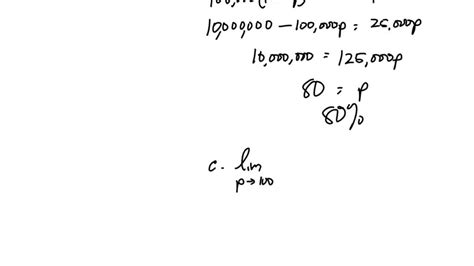 10,000,000 - 100,000p = 25,000p
10,000,000 = 125,000p
80 = p
80%
c. lim
p→100